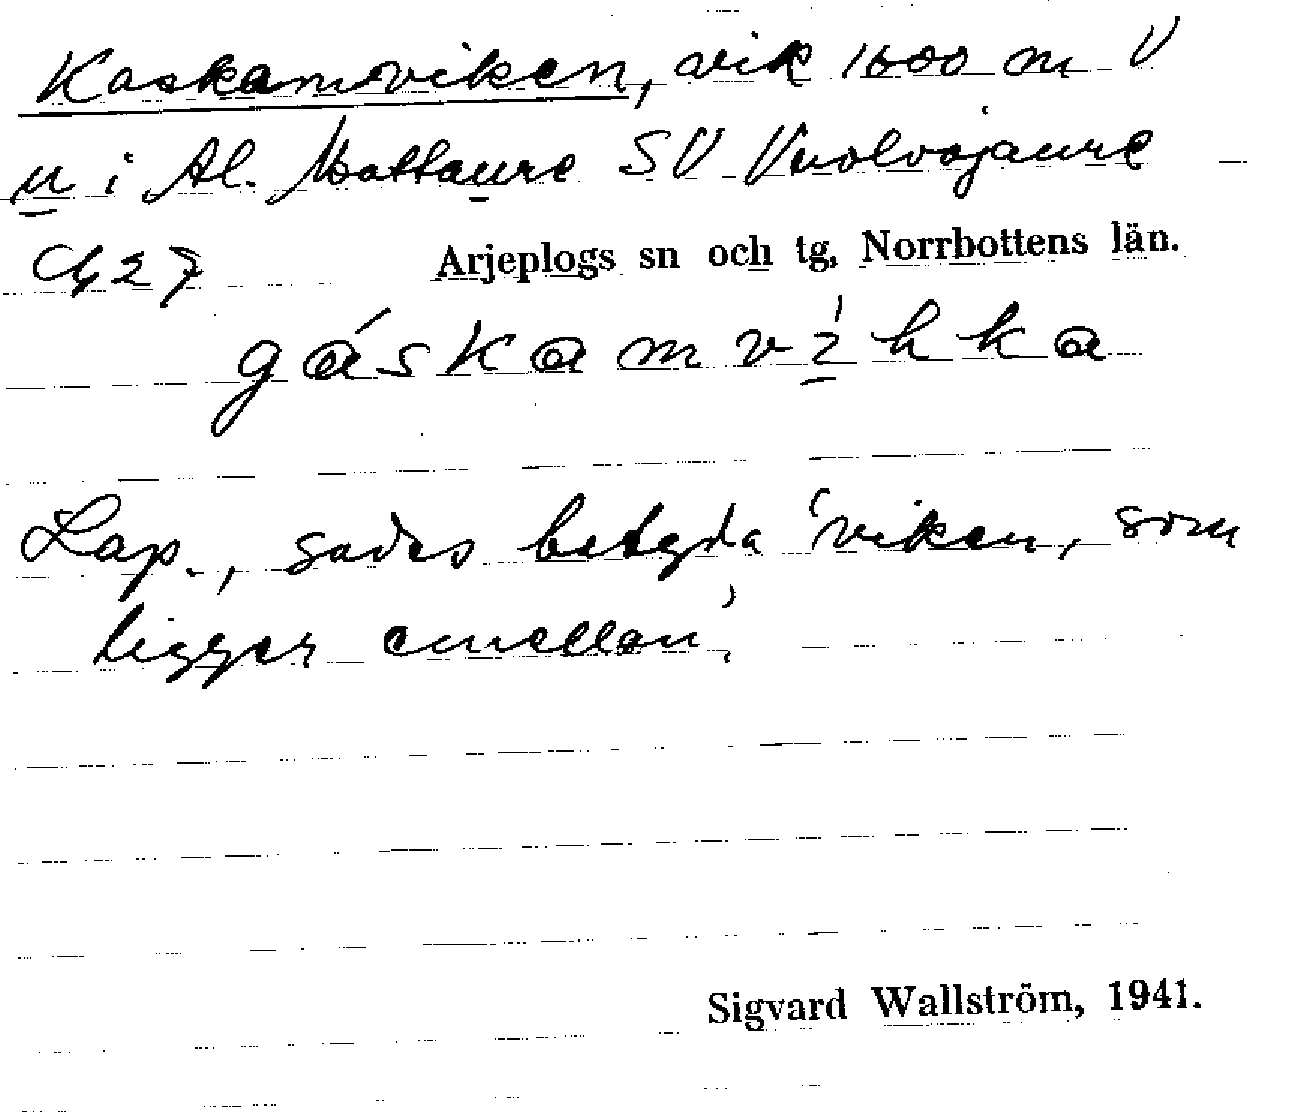 Kaskamviken, vik 1600 m V
u i Al. Mattaure SV Vuolvojaure
27 Arjeplogs sn och tg, Norrbottens län.
gáskamvìhka
Lap., sades betyda 'viken, som
ligger emellan'.
Sigvard Wallström, 1941.